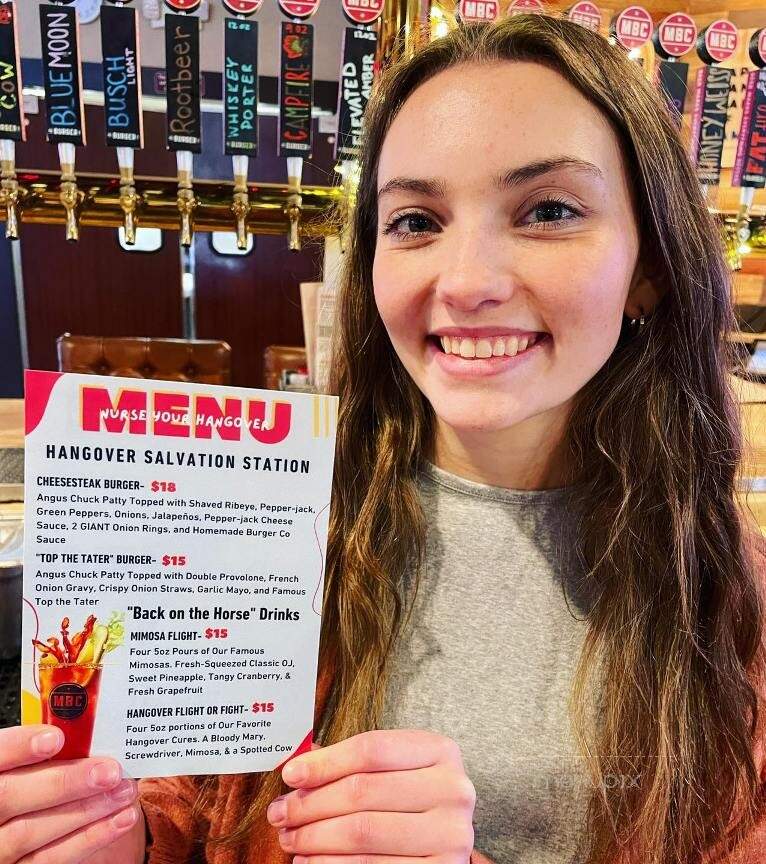 COW
BLUE MOON
BURGER
BUSCH
LIGHT
BURGER
Rootbeer
BURGER
12oz
WHISKEY
PORTER
BURGER
9oz
CAMPFIRE
BURGER
12oz
ELEVATED
AMBER
MBC
MBC
MBC
MBC
MBC
HONEY WEISS
FAT
MENU
NURSE YOUR HANGOVER
HANGOVER SALVATION STATION
CHEESESTEAK BURGER- $18
Angus Chuck Patty Topped with Shaved Ribeye, Pepper-jack,
Green Peppers, Onions, Jalapeños, Pepper-jack Cheese
Sauce, 2 GIANT Onion Rings, and Homemade Burger Co
Sauce
"TOP THE TATER" BURGER- $15
Angus Chuck Patty Topped with Double Provolone, French
Onion Gravy, Crispy Onion Straws, Garlic Mayo, and Famous
Top the Tater
"Back on the Horse" Drinks
MIMOSA FLIGHT- $15
Four 5oz Pours of Our Famous
Mimosas. Fresh-Squeezed Classic OJ,
Sweet Pineapple, Tangy Cranberry, &
Fresh Grapefruit
HANGOVER FLIGHT OR FIGHT- $15
Four 5oz portions of Our Favorite
Hangover Cures. A Bloody Mary,
Screwdriver, Mimosa, & a Spotted Cow
MBC